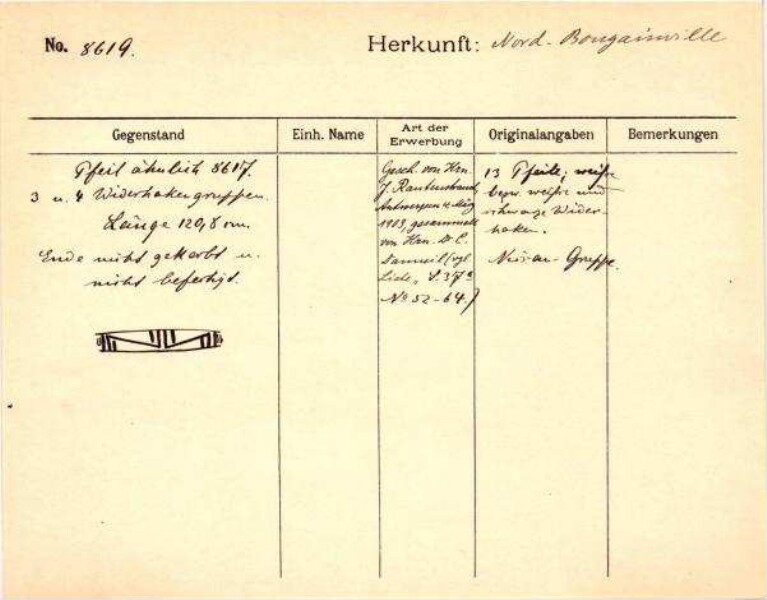 No. 8619.
Herkunft: Nord-Bougainville
Gegenstand
Einh. Name
Art der Erwerbung
Originalangaben
Bemerkungen
Pfeil ähnlich 8617.
3 u. 4 Widerhakengruppen.
Länge 120,8 cm.
Ende nicht gekerbt u.
nicht befestigt.
Gesch. von Hrn.
J. Rautenstrauch,
Antwerpen
1903, gesammelt
von Hrn. Dr. E.
(vgl.
Liste, S. 37
No 52-64.)
13 Pfeile; weiße
bezw. weiße und
schwarze Wider-
haken.
Nissan-Gruppe.